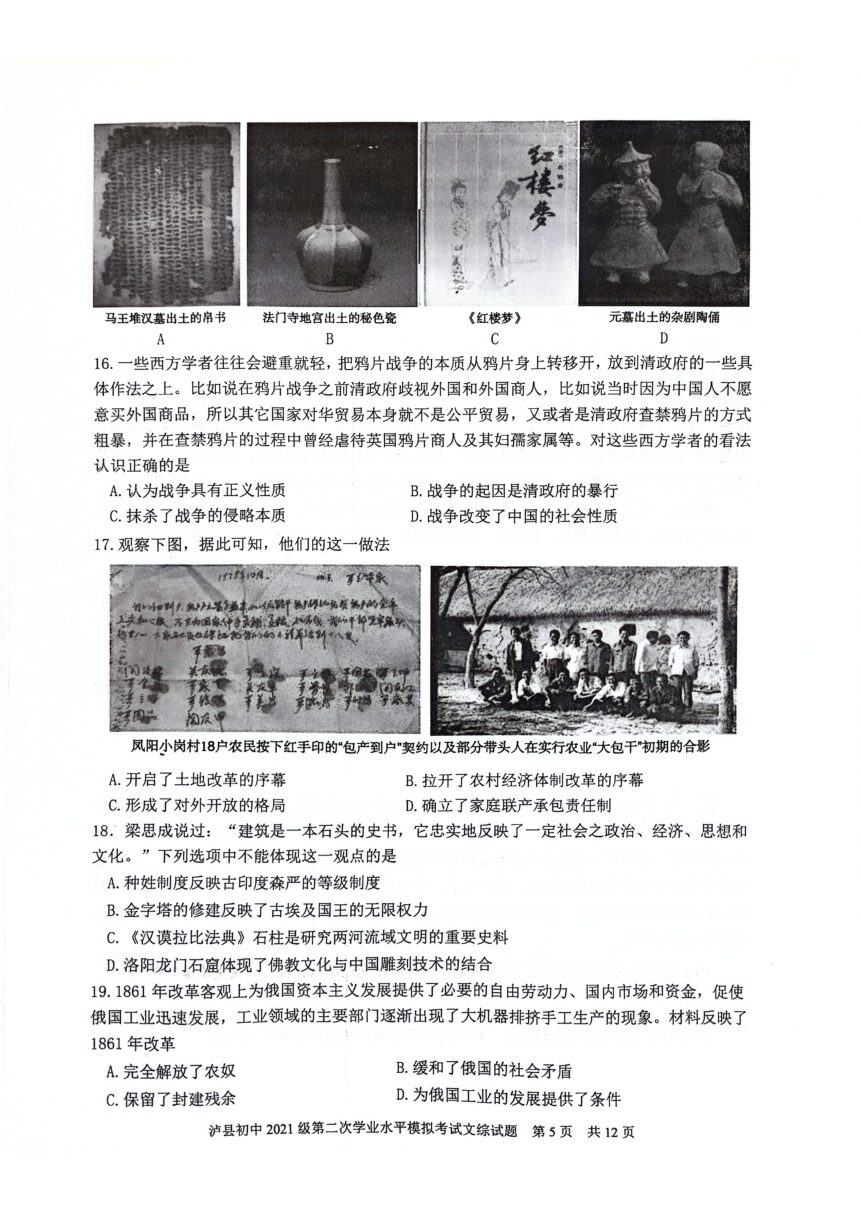 红楼梦
马王堆汉墓出土的帛书
法门寺地宫出土的秘色瓷
《红楼梦》
元墓出土的杂剧陶俑
A
B
C
D
16. 一些西方学者往往会避重就轻，把鸦片战争的本质从鸦片身上转移开，放到清政府的一些具
体作法之上。比如说在鸦片战争之前清政府歧视外国和外国商人，比如说当时因为中国人不愿
意买外国商品，所以其它国家对华贸易本身就不是公平贸易，又或者是清政府查禁鸦片的方式
粗暴，并在查禁鸦片的过程中曾经虐待英国鸦片商人及其妇孺家属等。对这些西方学者的看法
认识正确的是
A. 认为战争具有正义性质
B. 战争的起因是清政府的暴行
C. 抹杀了战争的侵略本质
D. 战争改变了中国的社会性质
17. 观察下图，据此可知，他们的这一做法
1978年12月
凤阳小岗村18户农民按下红手印的“包产到户”契约以及部分带头人在实行农业“大包干”初期的合影
A. 开启了土地改革的序幕
B. 拉开了农村经济体制改革的序幕
C. 形成了对外开放的格局
D. 确立了家庭联产承包责任制
18. 梁思成说过：“建筑是一本石头的史书，它忠实地反映了一定社会之政治、经济、思想和
文化。”下列选项中不能体现这一观点的是
A. 种姓制度反映古印度森严的等级制度
B. 金字塔的修建反映了古埃及国王的无限权力
C. 《汉谟拉比法典》石柱是研究两河流域文明的重要史料
D. 洛阳龙门石窟体现了佛教文化与中国雕刻技术的结合
19. 1861 年改革客观上为俄国资本主义发展提供了必要的自由劳动力、国内市场和资金，促使
俄国工业迅速发展，工业领域的主要部门逐渐出现了大机器排挤手工生产的现象。材料反映了
1861 年改革
A. 完全解放了农奴
B. 缓和了俄国的社会矛盾
C. 保留了封建残余
D. 为俄国工业的发展提供了条件
泸县初中 2021 级第二次学业水平模拟考试文综试题 第 5 页 共 12 页